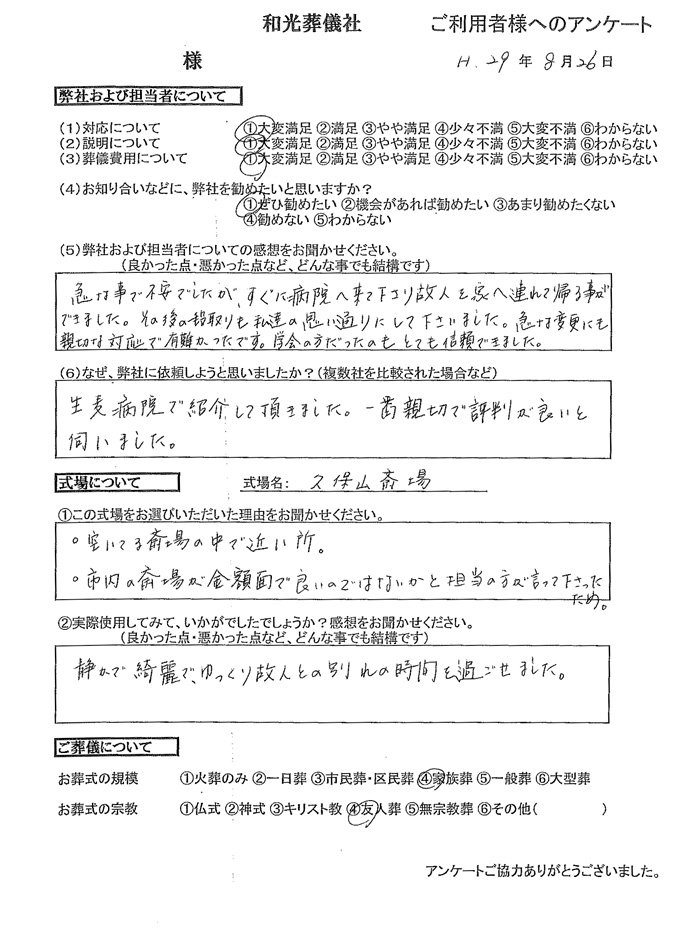 和光葬儀社 ご利用者様へのアンケート
様 H. 29 年 8 月 26 日
弊社および担当者について
(1)対応について ①大変満足 ②満足 ③やや満足 ④少々不満 ⑤大変不満 ⑥わからない
(2)説明について ①大変満足 ②満足 ③やや満足 ④少々不満 ⑤大変不満 ⑥わからない
(3)葬儀費用について ①大変満足 ②満足 ③やや満足 ④少々不満 ⑤大変不満 ⑥わからない
(4)お知り合いなどに、弊社を勧めたいと思いますか？
①ぜひ勧めたい ②機会があれば勧めたい ③あまり勧めたくない
④勧めない ⑤わからない
(5)弊社および担当者についての感想をお聞かせください。
(良かった点・悪かった点など、どんな事でも結構です)
急な事で不安でしたが、すぐに病院へ来て下さり故人を家へ連れて帰る事が
できました。その後の段取りも私達の思い通りにして下さいました。急な変更にも
親切な対応で有難かったです。学会の方だったのもとても信頼できました。
(6)なぜ、弊社に依頼しようと思いましたか？(複数社を比較された場合など)
生麦病院で紹介して頂きました。一番親切で評判が良いと
伺いました。
式場について 式場名: 久保山斎場
①この式場をお選びいただいた理由をお聞かせください。
○空いてる斎場の中で近い所。
○市内の斎場が金額面で良いのではないかと担当の方が言って下さった
ため。
②実際使用してみて、いかがでしたでしょうか？感想をお聞かせください。
(良かった点・悪かった点など、どんな事でも結構です)
静かで綺麗で、ゆっくり故人との別れの時間を過ごせました。
ご葬儀について
お葬式の規模 ①火葬のみ ②一日葬 ③市民葬・区民葬 ④家族葬 ⑤一般葬 ⑥大型葬
お葬式の宗教 ①仏式 ②神式 ③キリスト教 ④友人葬 ⑤無宗教葬 ⑥その他( )
アンケートご協力ありがとうございました。